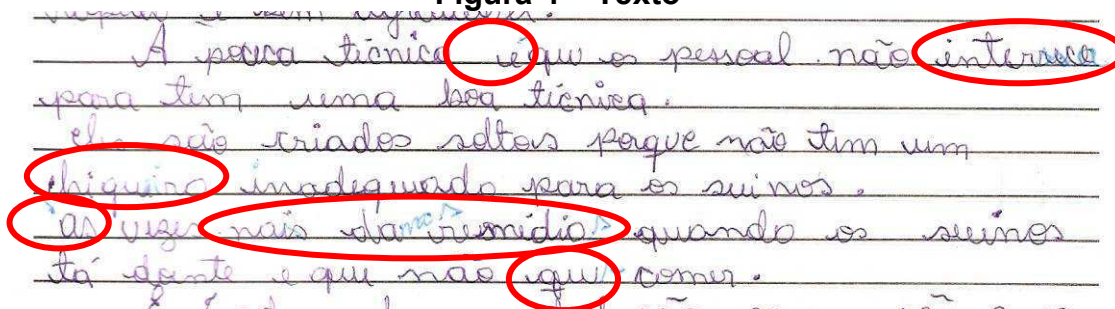 Figura 1 – Texto
A pouca técnica é que os pessoal não interesca
para tem uma boa técnica.
são criados soltos porque não tem um
chiqueiro inadequado para os suinos.
as vezes nais damos remédios quando os suinos
tá doente e que não que comer.